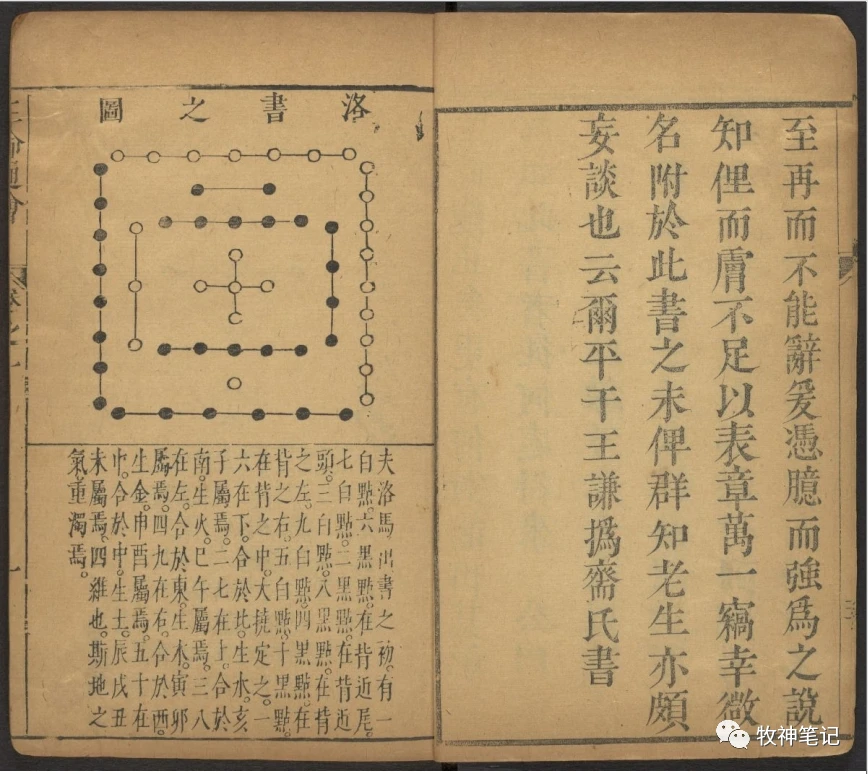 至再而不能辭爰憑臆而強爲之說
知俚而膚不足以表章萬一竊幸微
名附於此書之末俾群知老生亦頗
妄談也云爾平干王謙撝齋氏書
洛書之圖
夫洛馬出書之初。有一
白點。六黑點。在背近尾。
七白點。二黑點。在背近
頭。三白點。八黑點。在背
之左。九白點。四黑點。在
背之右。五白點。十黑點。
在背之中。大撓定之。一
六在下。合於北。生水。亥
子屬焉。二七在上。合於
南。生火。巳午屬焉。三八
在左。合於東。生木。寅卯
屬焉。四九在右。合於西。
生金。申酉屬焉。五十在
中。合於中。生土。辰戌丑
未屬焉。四維也。斯地之
氣。重濁焉。
牧神笔记